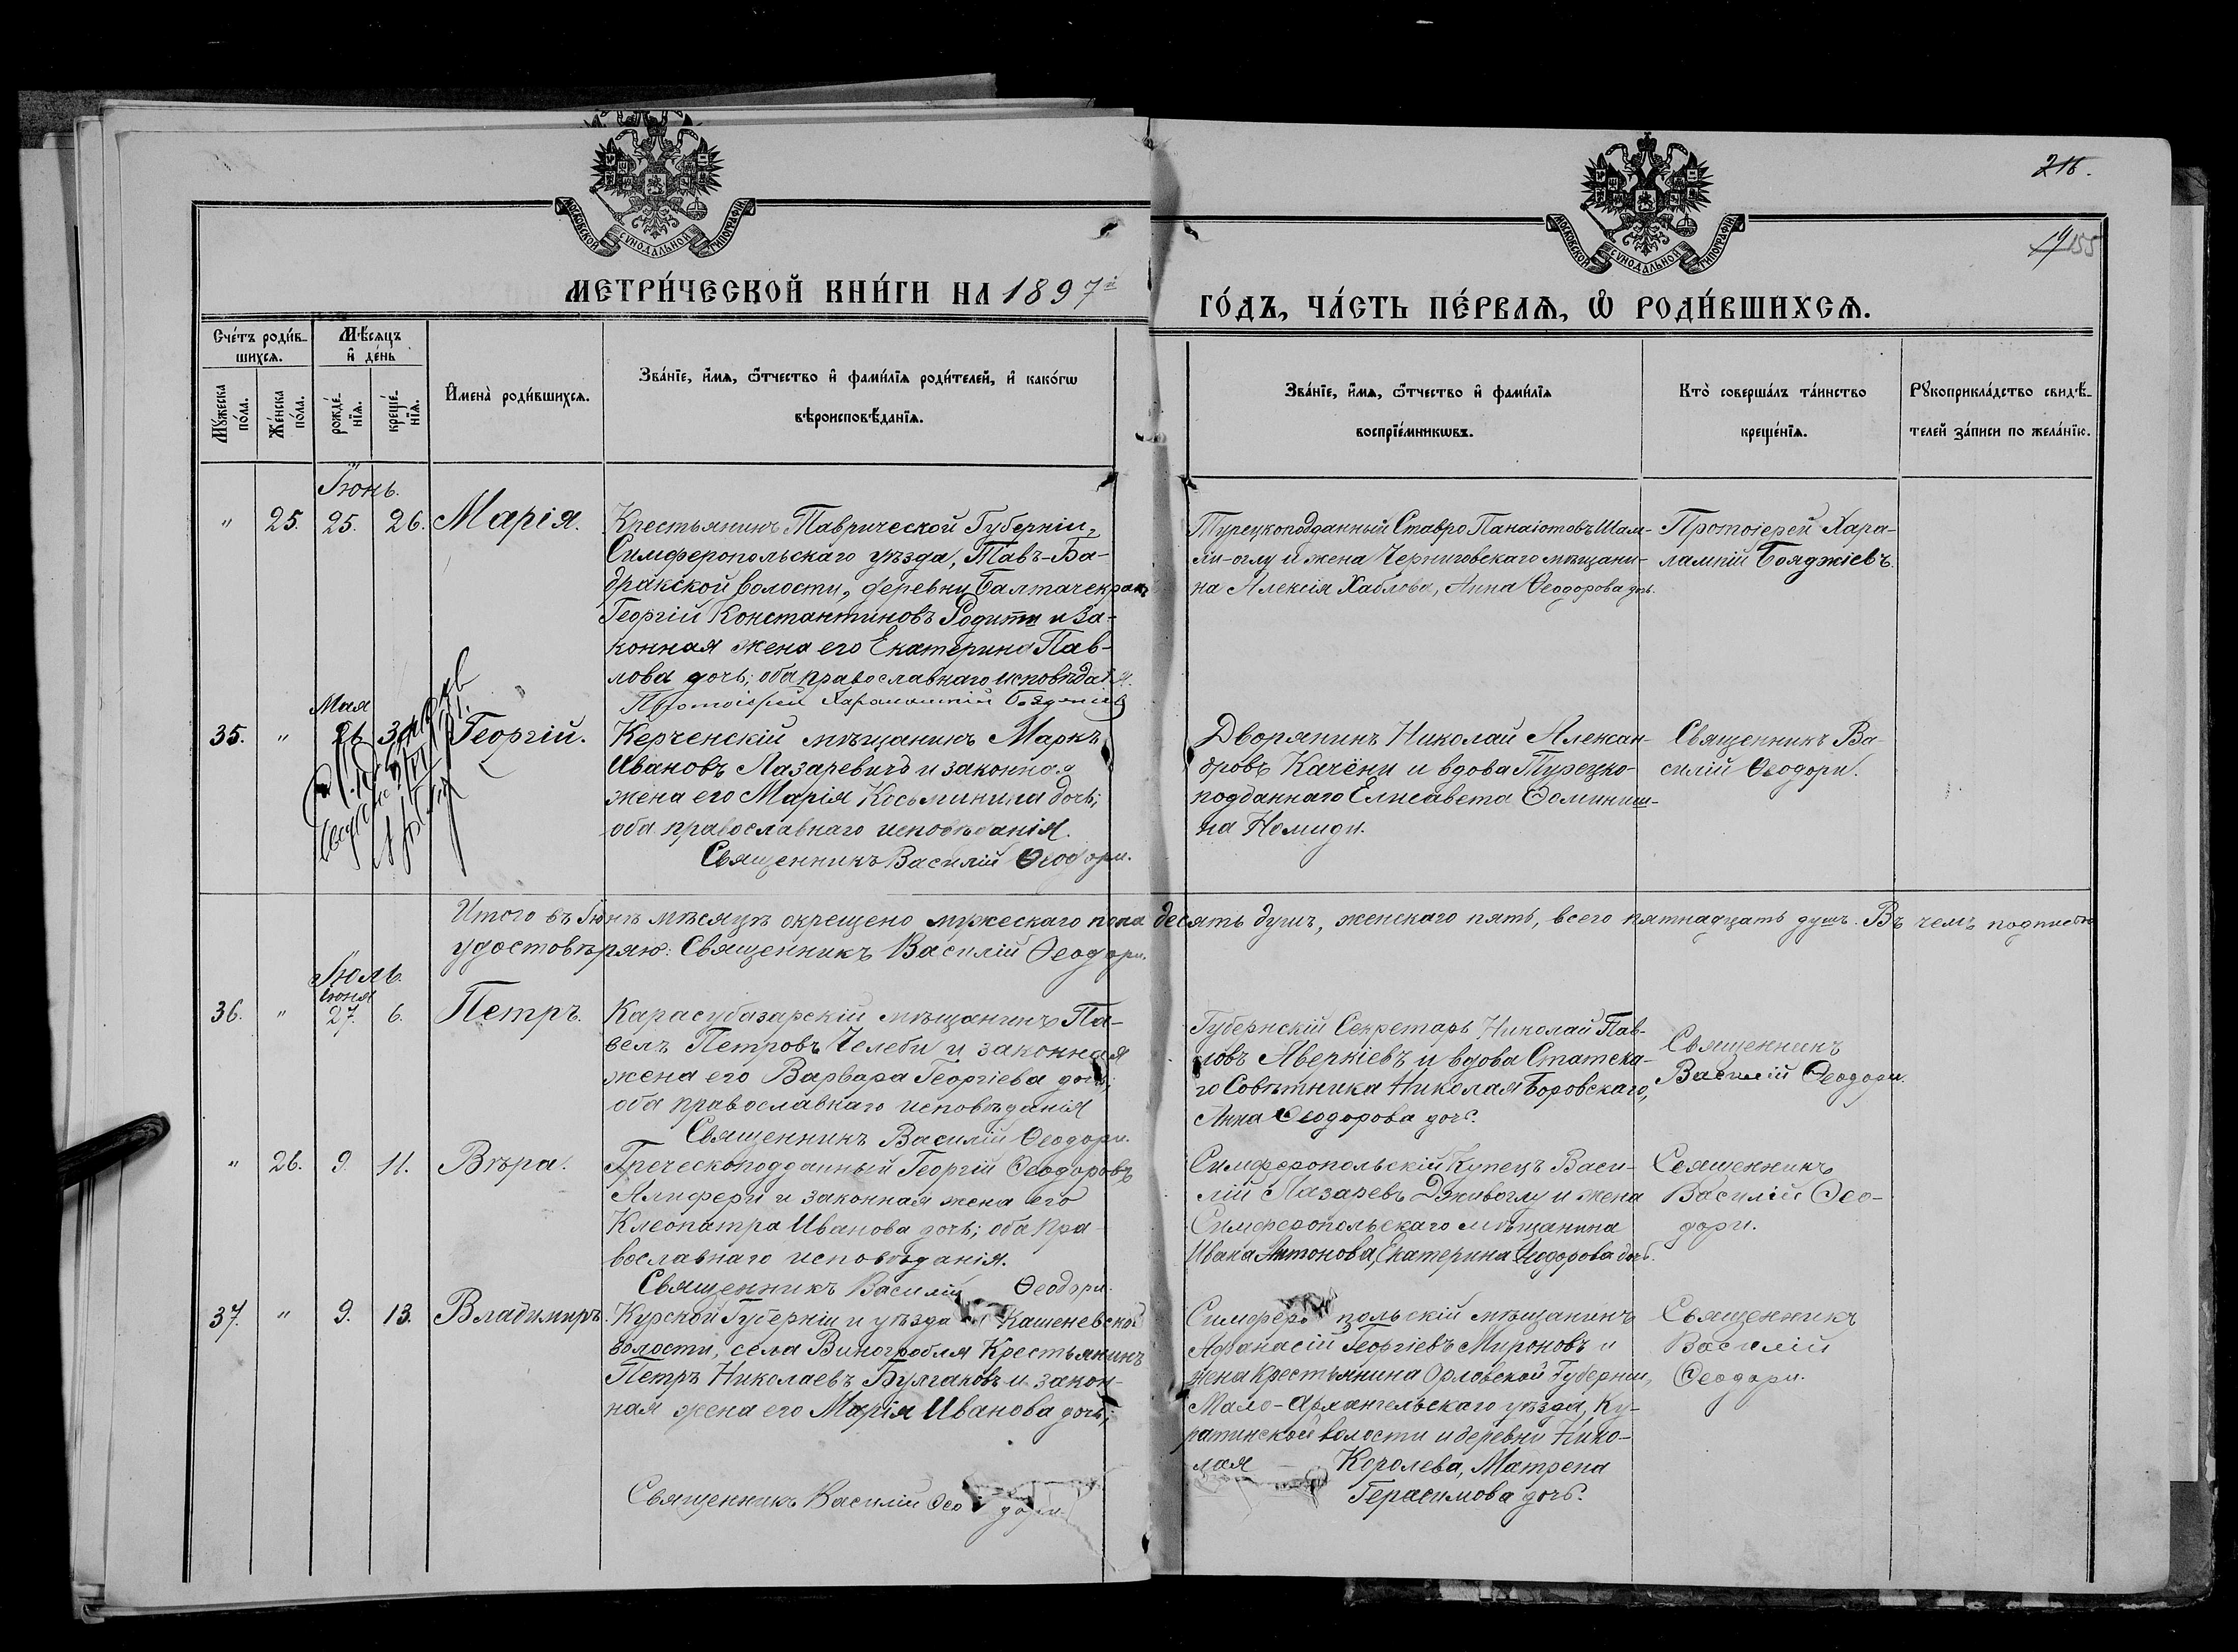 216.
155
МОСКОВСКОЙ СѴНОДАЛЬНОЙ ТИПОГРАФІИ
МОСКОВСКОЙ СѴНОДАЛЬНОЙ ТИПОГРАФІИ
МЕТРИ́ЧЕСКОЙ КНИ́ГИ НА 1897й
ГО́ДЪ, ЧА́СТЬ ПЕ́РВАѦ, Ѽ РОДИ́ВШИХСѦ.
Сче́тъ роди́в-
шихсѧ.
Мѣ́сѧцъ
и҆ де́нь
Мꙋ́жеска
по́ла.
Же́нска
по́ла.
рожде́-
нїѧ.
креще́-
нїѧ.
И҆мена̀ роди́вшихсѧ.
Зва́нїе, и҆́мѧ, ѻ҆́тчество и҆ фами́лїѧ роди́телей, и҆ како́гѡ
вѣроисповѣ́данїѧ.
Зва́нїе, и҆́мѧ, ѻ҆́тчество и҆ фами́лїѧ
воспрїе́мникѡвъ.
Кто̀ соверша́лъ та́инство
креще́нїѧ.
Рꙋкоприкла́дство свидѣ́-
телей за́писи по жела́нїю.
Іюнь.
" 25. 25. 26. Марія.
Крестьянинъ Таврической Губерніи,
Симферопольскаго уѣзда, Тавъ-Ба-
дракской волости, деревни Балтачекракъ
Георгій Константиновъ Родити и за-
конная жена его Екатерина Пав-
лова дочь; оба православнаго исповѣданія.
Протоіерей Харалампій Бояджіевъ
Турецкоподданный Ставро Панаіотовъ Шам-
ли-оглу и жена Черниговскаго мѣщани-
на Алексія Хаблова, Анна Ѳеодорова дчь.
Протоіерей Хара-
лампій Бояджіевъ.
Мая
35. " 26 Георгій.
Керченскій мѣщанинъ Маркъ
Ивановъ Лазаревичъ и законная
жена его Марія Косьминина дочь;
оба православнаго исповѣданія.
Священникъ Василій Ѳеодори.
Дворянинъ Николай Алексан-
дровъ Качёни и вдова Турецко-
подданнаго Елисавета Ѳоминиш-
на Номиди.
Священникъ Ва-
силій Ѳеодори.
Итого въ Іюнѣ мѣсяцѣ окрещено мужескаго пола десять душъ, женскаго пять, всего пятнадцать душъ. Въ чемъ подписью
удостовѣряю: Священникъ Василій Ѳеодори.
Іюль.
Іюня
36. " 27. 6. Петръ.
Карасубазарскій мѣщанинъ Па-
велъ Петровъ Челеби и законная
жена его Варвара Георгіева дочь;
оба православнаго исповѣданія
Священникъ Василій Ѳеодори.
Губернскій Секретарь Николай Пав-
ловъ Аверкіевъ и вдова Статска-
го Совѣтника Николая Боровскаго,
Анна Ѳеодорова дочь.
Священникъ
Василій Ѳеодори.
" 26. 9. 11. Вѣра.
Греческоподданный Георгій Ѳеодоровъ
Алифери и законная жена его
Клеопатра Иванова дочь; оба пра-
вославнаго исповѣданія.
Священникъ Василій Ѳеодори.
Симферопольскій Купецъ Васи-
лій Лазаревъ Дживоглу и жена
Симферопольскаго мѣщанина
Ивана Антонова, Екатерина Ѳеодорова дочь.
Священникъ
Василій Ѳео-
дори.
37. " 9. 13. Владимиръ.
Курской Губерніи и уѣзда Кашеневской
волости, села Виногробля Крестьянинъ
Петръ Николаевъ Булгаковъ и закон-
ная жена его Марія Иванова дочь;
Священникъ Василій Ѳеодори.
Симферопольскій мѣщанинъ
Аѳанасій Георгіевъ Мироновъ и
жена Крестьянина Орловской Губерніи,
Мало-Архангельскаго уѣзда, Ку-
ратинской волости и деревни Нико-
лая Королева, Матрена
Герасимова дочь.
Священникъ
Василій
Ѳеодори.